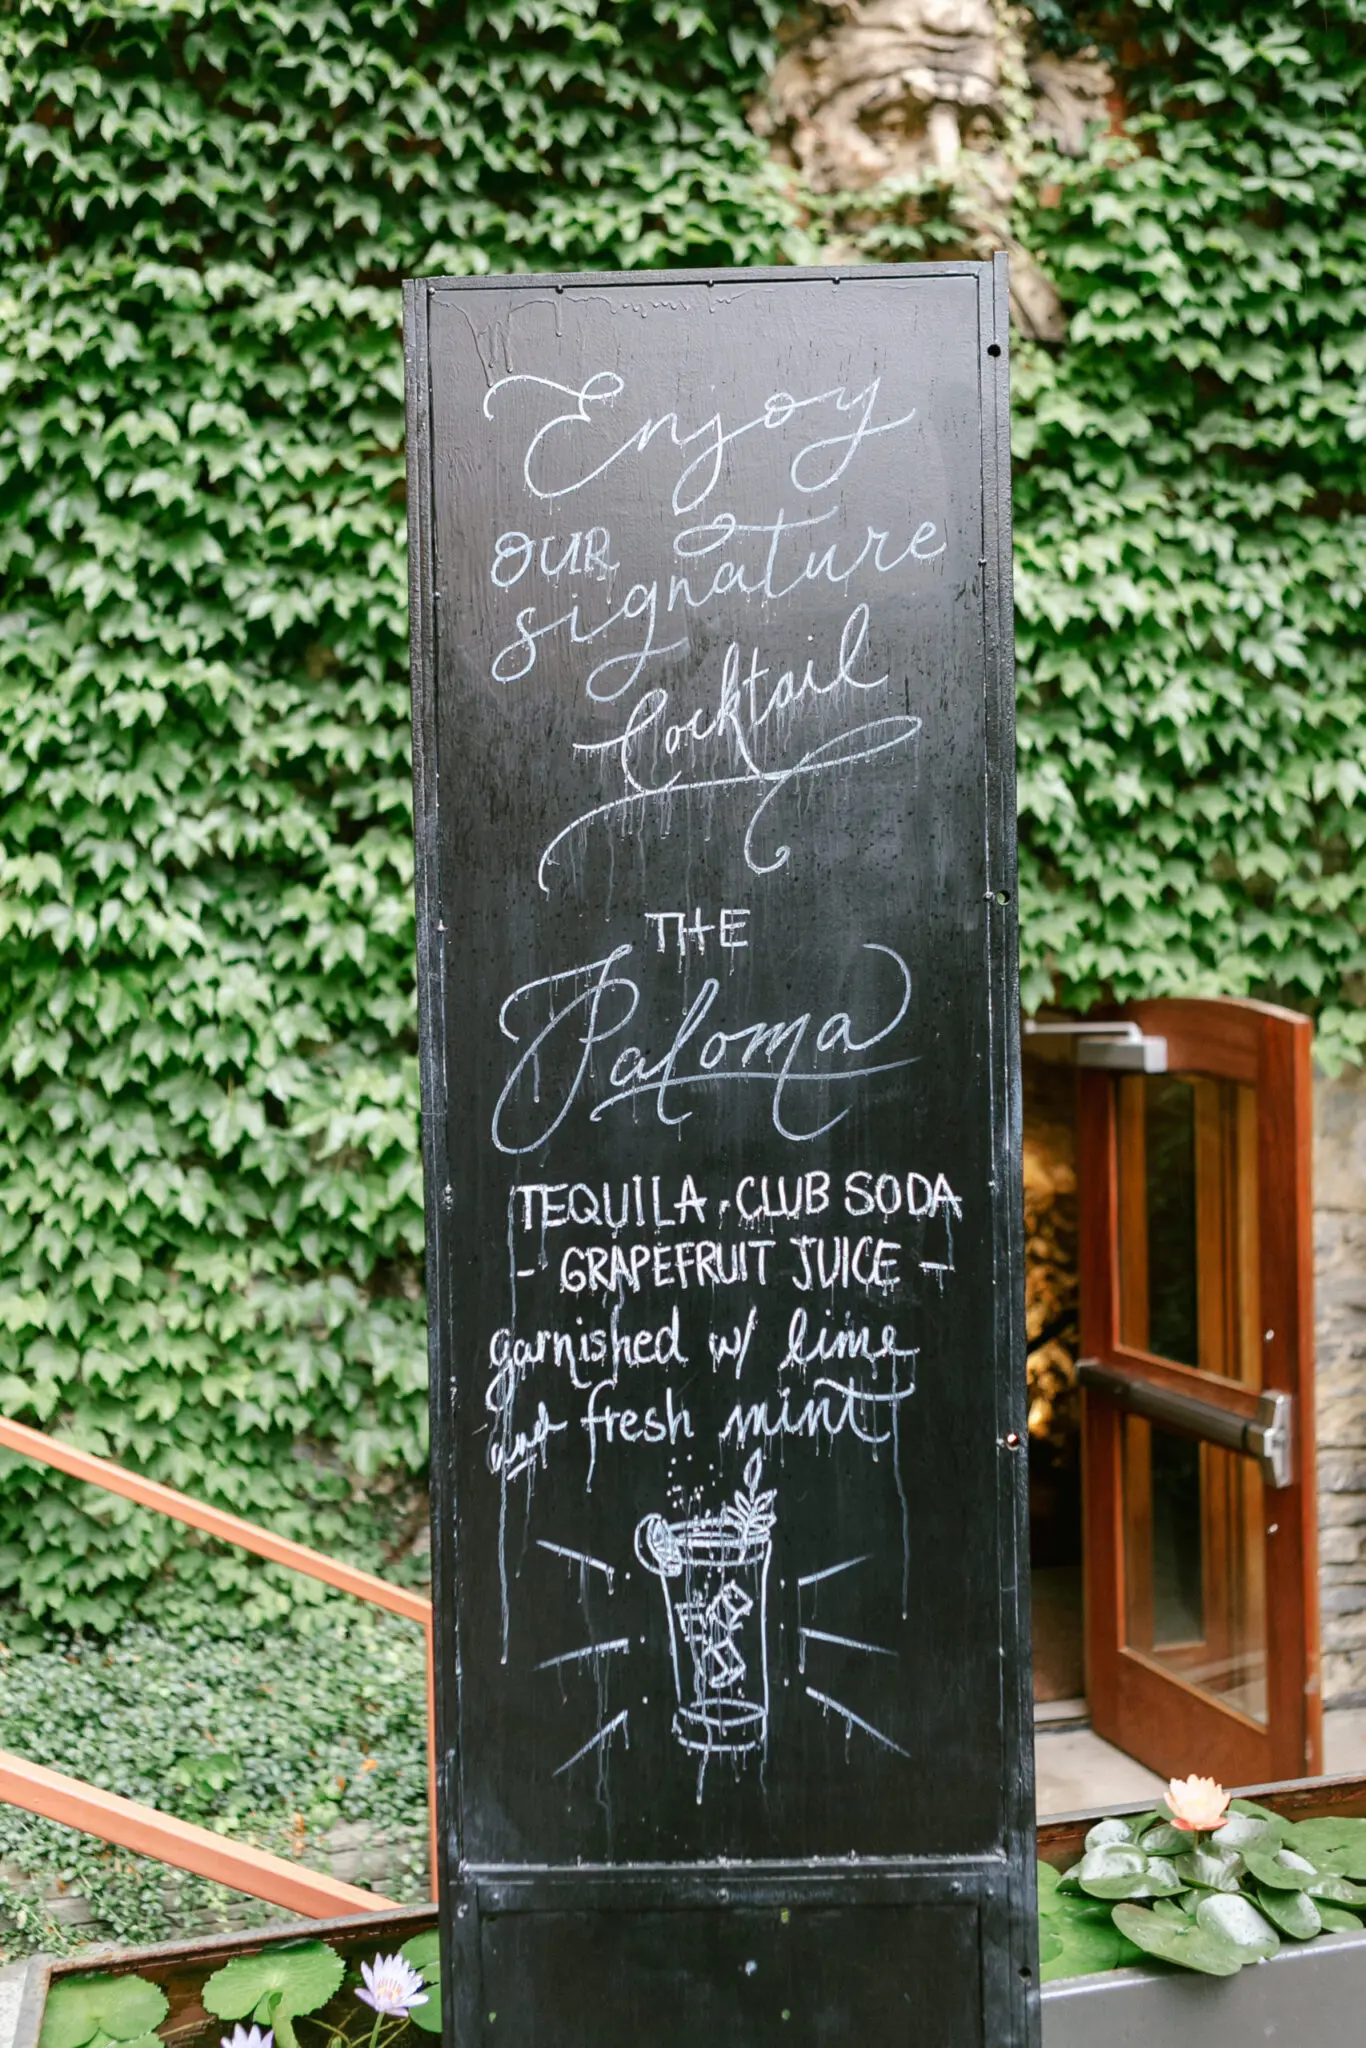 Enjoy
OUR signature
Cocktail
THE
Paloma
TEQUILA, CLUB SODA
- GRAPEFRUIT JUICE -
garnished w/ lime
and fresh mint